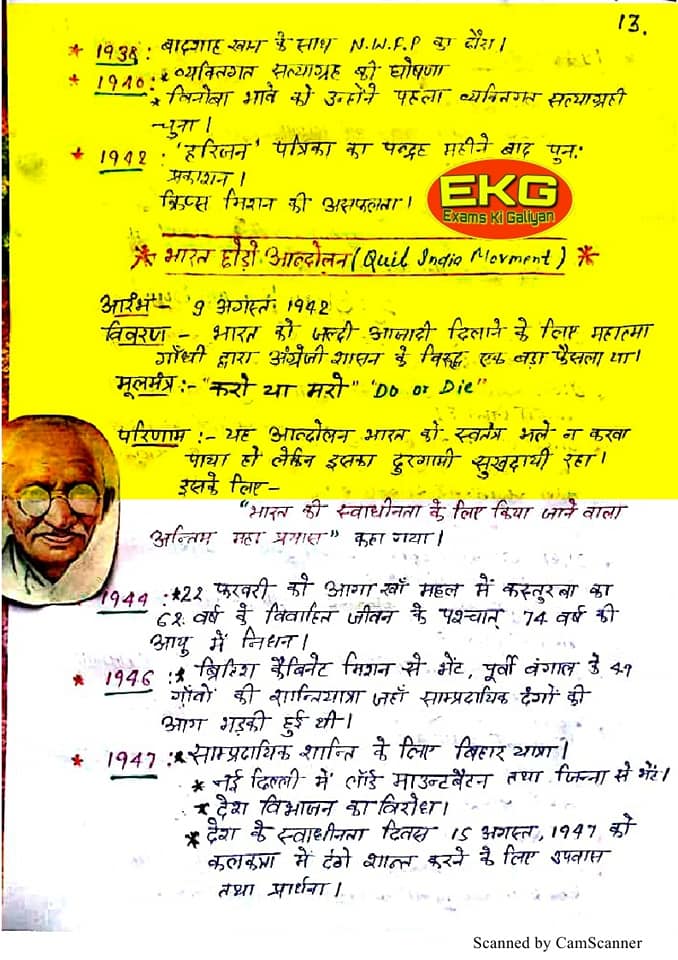 13.
* 1938 : बादशाह खान के साथ N.W.F.P का दौरा।
* 1940 : * व्यक्तिगत सत्याग्रह की घोषणा
* विनोबा भावे को उन्होंने पहला व्यक्तिगत सत्याग्रही
चुना।
* 1942 : 'हरिजन' पत्रिका का पन्द्रह महीने बाद पुनः
प्रकाशन।
क्रिप्स मिशन की असफलता।
EKG
Exams Ki Galiyan
* भारत छोड़ो आन्दोलन (Quil India Movment) *
आरंभ - 9 अगस्त 1942
विवरण - भारत को जल्दी आजादी दिलाने के लिए महात्मा
गाँधी द्वारा अंग्रेजी शासन के विरुद्ध एक बड़ा फैसला था।
मूलमंत्र :- "करो या मरो" 'Do or Die"
परिणाम :- यह आन्दोलन भारत को स्वतंत्र भले न करवा
पाया हो लेकिन इसका दुरगामी सुखदायी रहा।
इसके लिए-
"भारत की स्वाधीनता के लिए किया जाने वाला
अन्तिम महा प्रयास" कहा गया।
1944 : *22 फरवरी को आगा खाँ महल में कस्तुरबा का
62 वर्ष के विवाहित जीवन के पश्चात् 74 वर्ष की
आयु में निधन।
* 1946 : * ब्रिटिश कैबिनेट मिशन से भेंट, पूर्वी बंगाल के 49
गाँवों की शान्तियात्रा जहाँ साम्प्रदायिक दंगों की
आग भड़की हुई थी।
* 1947 : * साम्प्रदायिक शान्ति के लिए बिहार यात्रा।
* नई दिल्ली में लॉर्ड माउन्टबैटन तथा जिन्ना से भेंट।
* देश विभाजन का विरोध।
* देश के स्वाधीनता दिवस 15 अगस्त, 1947 को
कलकत्ता में दंगे शान्त करने के लिए उपवास
तथा प्रार्थना।
Scanned by CamScanner